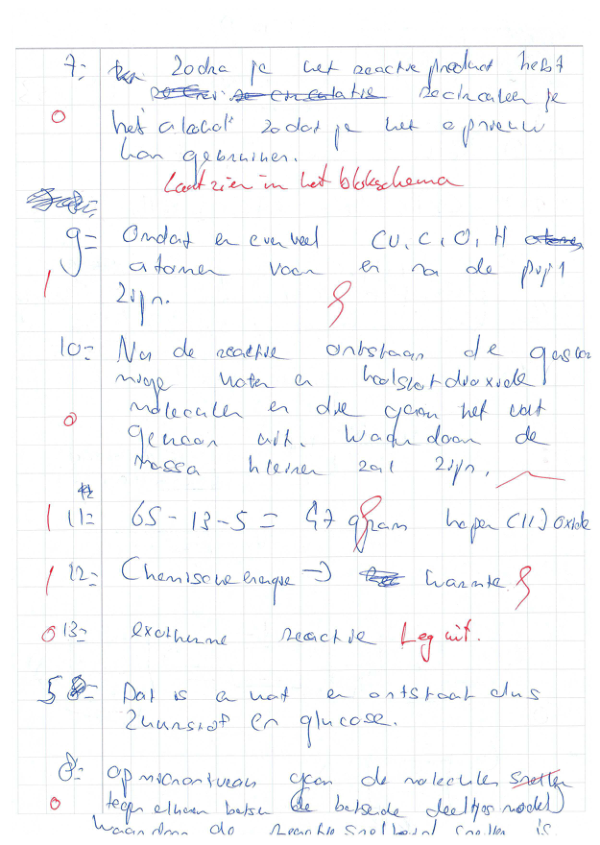 7= zodra je het reactieproduct hebt
recirculeer je
0 het alcohol zodat je het opnieuw
kan gebruiken.
Laat zien in het blokschema
9= Omdat er evenveel Cu, C, O, H
1 atomen voor en na de pijl
zijn.
10= Na de reactie ontstaan de gasvor
mige water en koolstofdioxide
0 moleculen en die gaan het vat
gewoon uit. Waardoor de
massa kleiner zal zijn.
1 11= 65-13-5 = 47 gram koper(II)oxide
1 12= Chemische energie → warmte
0 13= exotherme reactie Leg uit.
5 = Dat is a wat er ontstaat dus
Zuurstof en glucose.
8= op microniveau gaan de moleculen
0 tegen elkaar botsen (de botsende deeltjes model)
waardoor de reactiesnelheid sneller is